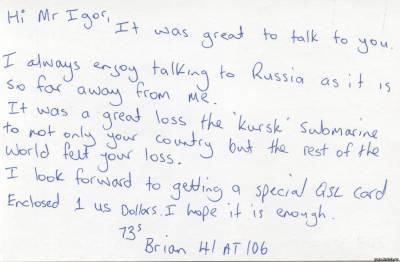 Hi Mr Igor,
It was great to talk to you.
I always enjoy talking to Russia as it is
so far away from me.
It was a great loss the 'kursk' Submarine
to not only your country but the rest of the
world felt your loss.
I look forward to getting a special QSL card
Enclosed 1 US Dollars. I hope it is enough.
73s
Brian 41 AT 106